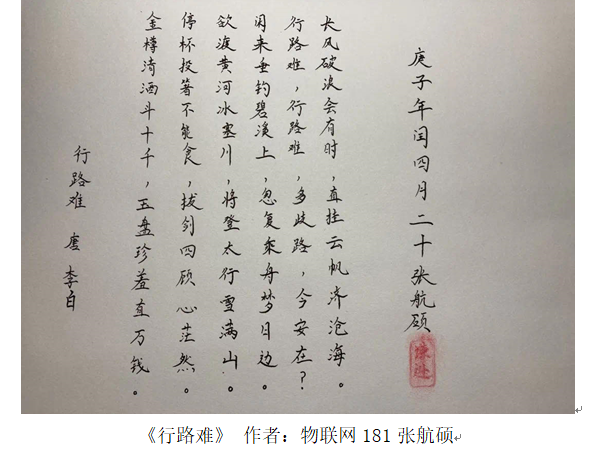 行路难 唐 李白
金樽清酒斗十千，玉盘珍羞直万钱。
停杯投箸不能食，拔剑四顾心茫然。
欲渡黄河冰塞川，将登太行雪满山。
闲来垂钓碧溪上，忽复乘舟梦日边。
行路难，行路难，多歧路，今安在？
长风破浪会有时，直挂云帆济沧海。
庚子年闰四月二十张航硕
《行路难》 作者：物联网181张航硕